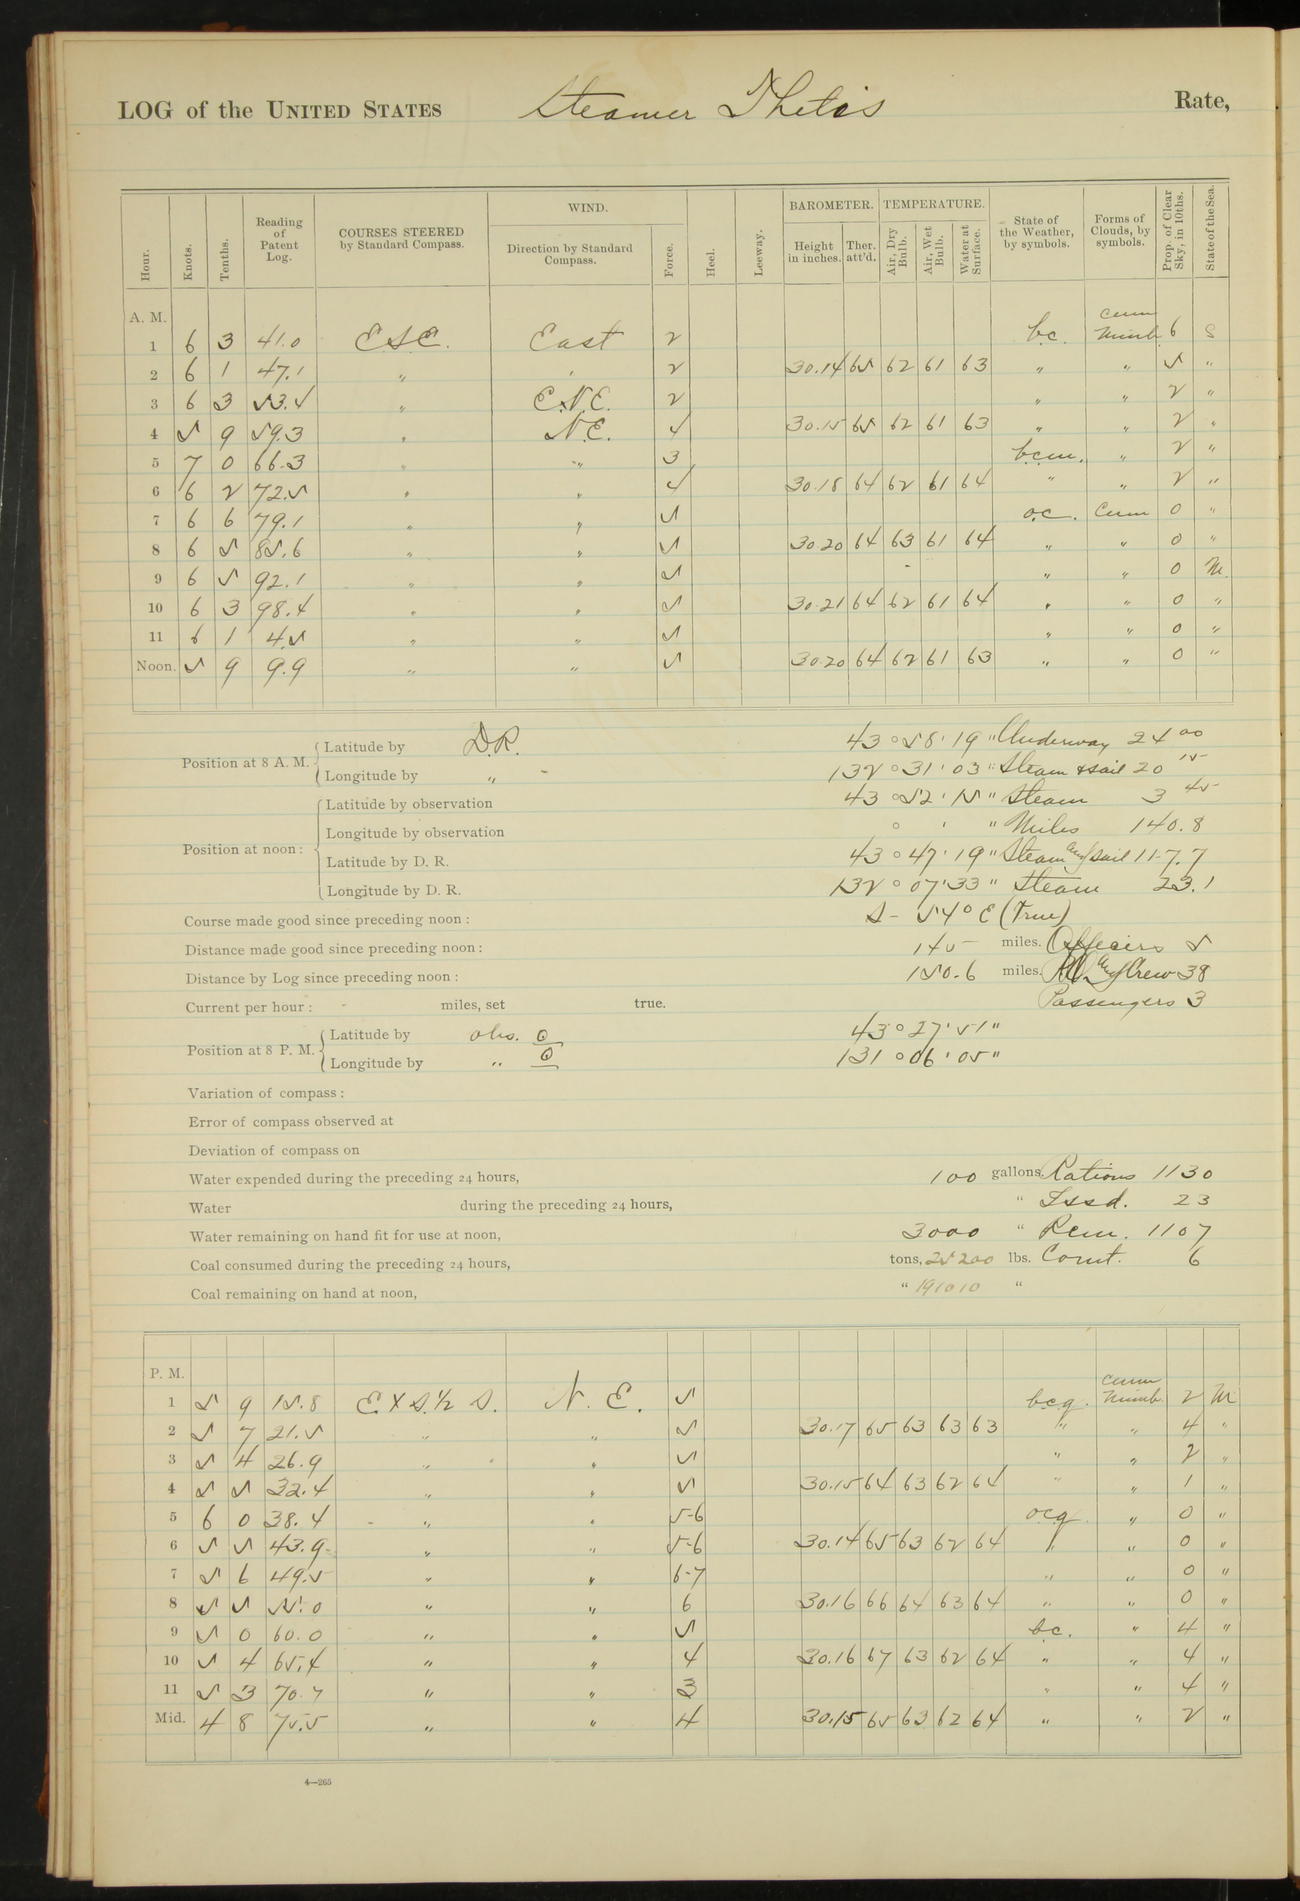 LOG of the UNITED STATES Steamer Thetis Rate,
Hour. Knots. Tenths. Reading of Patent Log. COURSES STEERED by Standard Compass. WIND. Direction by Standard Compass. Force. Heel. Leeway. BAROMETER. Height in inches. Ther. att'd. TEMPERATURE. Air, Dry Bulb. Air, Wet Bulb. Water at Surface. State of the Weather, by symbols. Forms of Clouds, by symbols. Prop. of Clear Sky, in 10ths. State of the Sea.
A. M.
1 6 3 41.0 ESE. East 2 bc. Cum Nimb. 6 S
2 6 1 47.1 " " 2 30.14 65 62 61 63 " " 5 "
3 6 3 53.4 " E.N.E. 2 " " 2 "
4 5 9 59.3 " N.E. 4 30.15 65 62 61 63 " " 2 "
5 7 0 66.3 " " 3 bcm. " 2 "
6 6 2 72.5 " " 4 30.18 64 62 61 64 " " 2 "
7 6 6 79.1 " " 5 oc. Cum 0 "
8 6 5 85.6 " " 5 30.20 64 63 61 64 " " 0 "
9 6 5 92.1 " " 5 " " 0 M.
10 6 3 98.4 " " 5 30.21 64 62 61 64 " " 0 "
11 6 1 4.5 " " 5 " " 0 "
Noon. 5 9 9.9 " " 5 30.20 64 62 61 63 " " 0 "
Position at 8 A. M. Latitude by D.R. 43 ° 58 ' 19 " Underway 24 00
Longitude by " 132 ° 31 ' 03 " Steam & sail 20 15
Position at noon: Latitude by observation 43 ° 52 ' 15 " Steam 3 45
Longitude by observation ° ' " Miles 140.8
Latitude by D. R. 43 ° 47 ' 19 " Steam and sail 117.7
Longitude by D. R. 132 ° 07 ' 33 " Steam 23.1
Course made good since preceding noon: S - 54° E (True)
Distance made good since preceding noon: 145 miles. Officers 5
Distance by Log since preceding noon: 150.6 miles. and Crew 38
Current per hour: - miles, set true. Passengers 3
Position at 8 P. M. Latitude by obs. 43 ° 27 ' 51 "
Longitude by " 131 ° 06 ' 05 "
Variation of compass:
Error of compass observed at
Deviation of compass on
Water expended during the preceding 24 hours, 100 gallons. Rations 1130
Water during the preceding 24 hours, " Issd. 23
Water remaining on hand fit for use at noon, 3000 " Rem. 1107
Coal consumed during the preceding 24 hours, tons, 25200 lbs. Comt. 6
Coal remaining on hand at noon, " 191010 "
P. M.
1 5 9 15.8 E X S. 1/2 S. N. E. 5 bcq. Cum Nimb. 2 M
2 5 7 21.5 " " 5 30.17 65 63 63 63 " " 4 "
3 5 4 26.9 " " 5 " " 2 "
4 5 5 32.4 " " 5 30.15 64 63 62 64 " " 1 "
5 6 0 38.4 " " 5-6 ocq " 0 "
6 5 5 43.9 " " 5-6 30.14 65 63 62 64 " " 0 "
7 5 6 49.5 " " 6-7 " " 0 "
8 5 5 55.0 " " 6 30.16 66 64 63 64 " " 0 "
9 5 0 60.0 " " 5 bc. " 4 "
10 5 4 65.4 " " 4 30.16 67 63 62 64 " " 4 "
11 5 3 70.7 " " 3 " " 4 "
Mid. 4 8 75.5 " " 4 30.15 65 63 62 64 " " 2 "
4—265